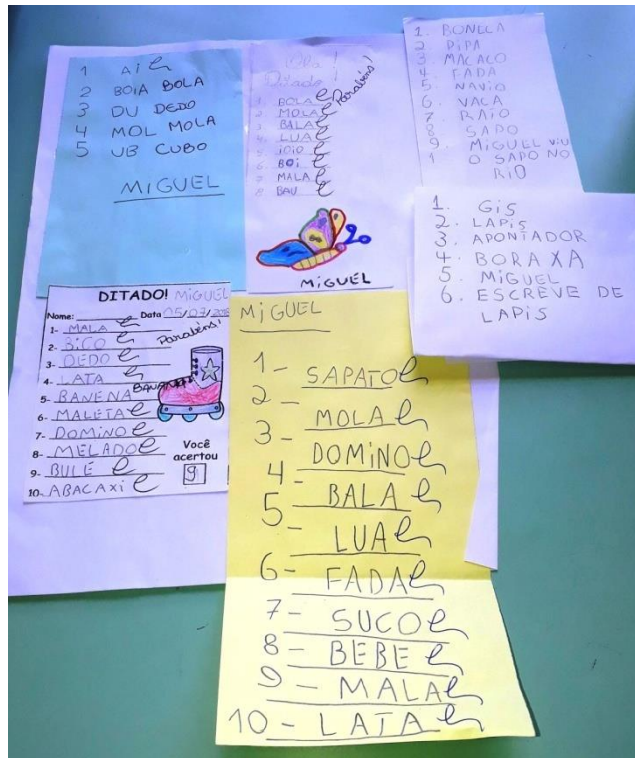 1 AI
2 BOIA BOLA
3 DU DEDO
4 MOL MOLA
5 UB CUBO
MIGUEL
Olá!
Ditado
Parabéns!
1. BOLA
2. MOLA
3. BALA
4. LUA
5. IOIO
6. BOI
7. MALA
8. BAU
MIGUEL
1. BONECA
2. PIPA
3. MACACO
4. FADA
5. NAVIO
6. VACA
7. RAIO
8. SAPO
9. MIGUEL VIU
1 O SAPO NO
RIO
1. GIS
2. LAPIS
3. APONTADOR
4. BORAXA
5. MIGUEL
6. ESCREVE DE
LAPIS
DITADO! MIGUEL
Nome: Data 05/07/
Parabéns!
1- MALA
2- BICO
3- DEDO
4- LATA
5- BANENA BANANA
6- MALETA
7- DOMINO
8- MELADO
9- BULE
10- ABACAXI
Você
acertou
9
MIGUEL
1- SAPATO
2- MOLA
3- DOMINO
4- BALA
5- LUA
6- FADA
7- SUCO
8- BEBE
9- MALA
10- LATA